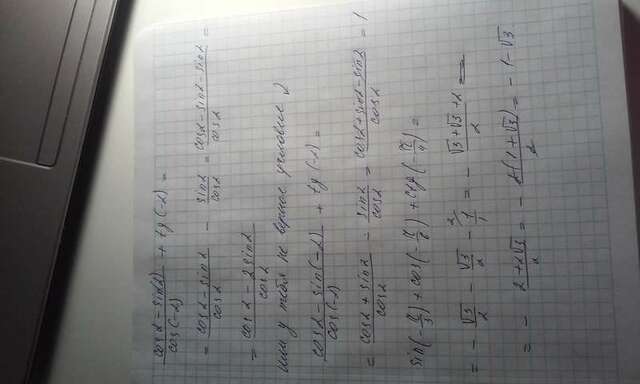 (cosα - sin(α))/cos(-α) + tg(-α) =
= (cosα - sinα)/cosα - sinα/cosα = (cosα - sinα - sinα)/cosα =
= (cosα - 2sinα)/cosα
или у тебя не верное условие
(cosα - sin(-α))/cos(-α) + tg(-α) =
= (cosα + sinα)/cosα - sinα/cosα = (cosα + sinα - sinα)/cosα = 1
sin(-π/3) + cos(-π/6) + ctg(-π/4) =
= - √3/2 - √3/2 - 1/1 = - (√3 + √3 + 2)/2 =
= - (2 + 2√3)/2 = - 2(1 + √3)/2 = - 1 - √3